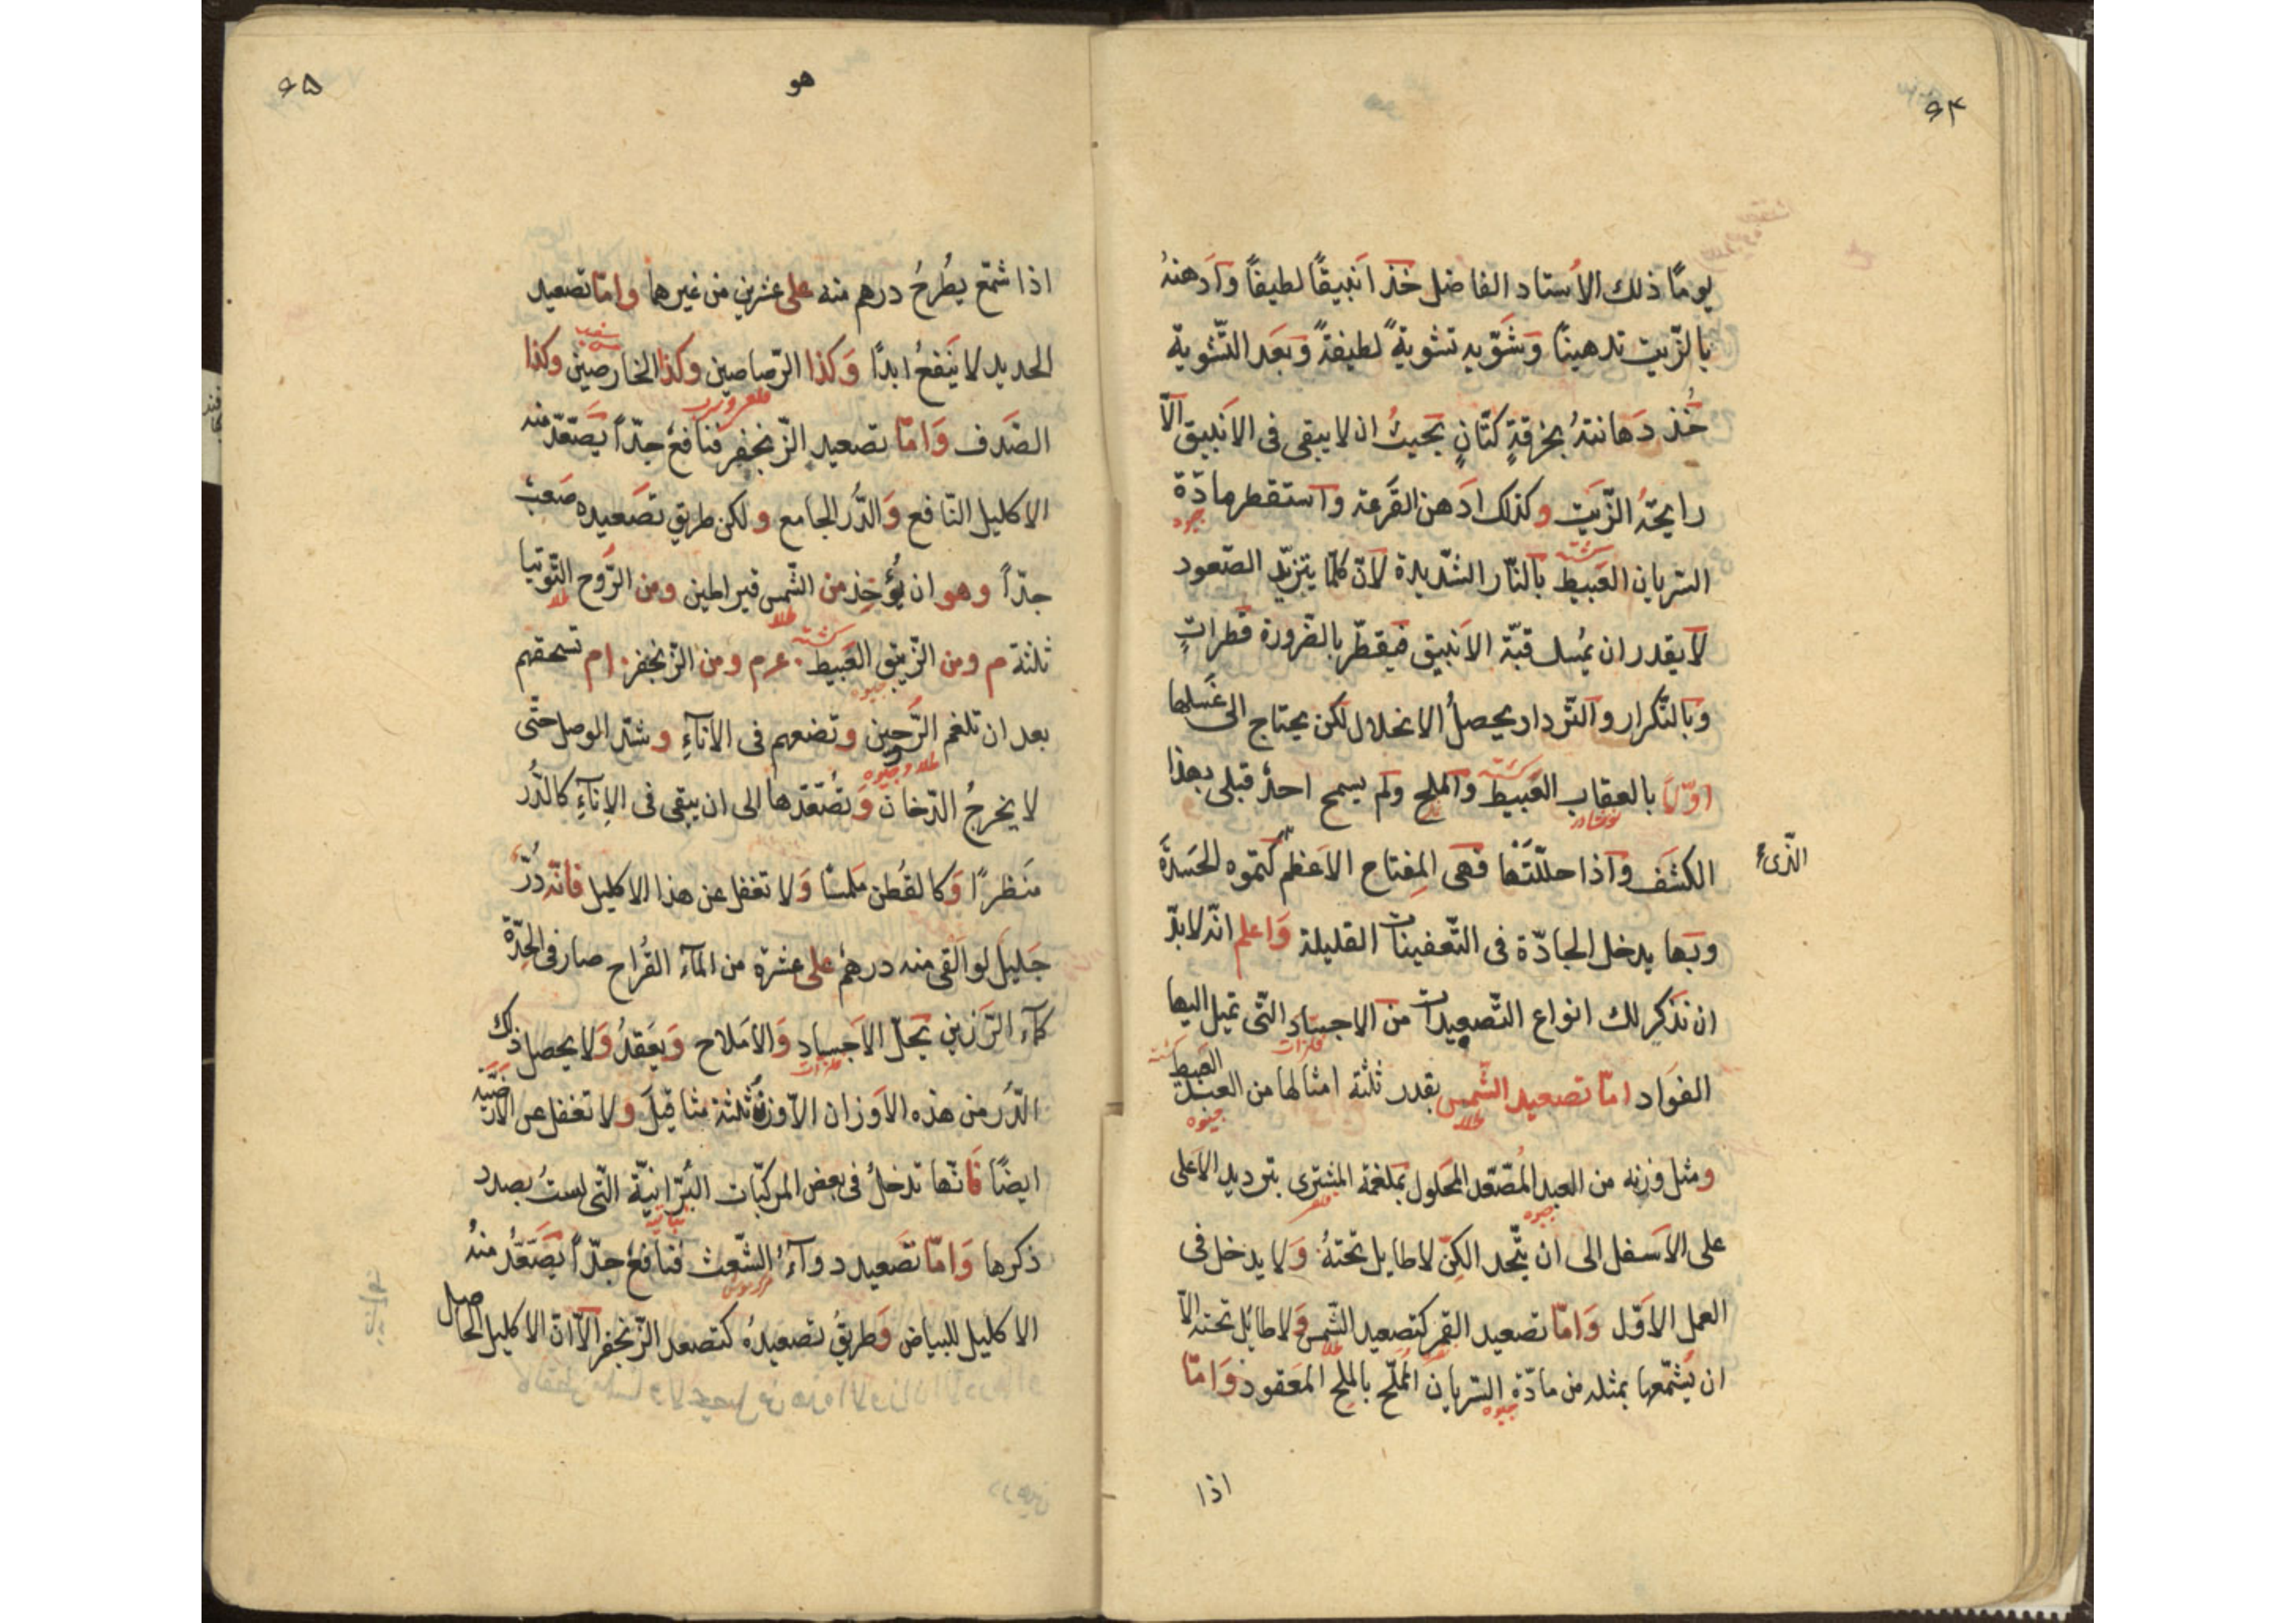 ۶۴
يومًا ذلك الأستاد الفاضل خذ انبيقًا لطيفًا وادهنهُ
بالزّيت تدهينًا وشوّيه تشويةً لطيفةً وبعد التّشوية
خُذ دهانتهُ بخرقةٍ كتّانٍ بحيثُ ان لا يبقى فى الانبيق الّا
رايحةُ الزّيت وكذلك ادهن القرعة واستقطرها دّة
جيوه
السريان العبيط بالنّار الشّديدة لانّ كلّما يتزيّد الصّعود
لا يقدر ان يمُسك قبّة الانبيق فيقطّر بالضّرورة قطراتٍ
وبالتّكرار والتّرداد يحصلُ الانحلال لكن يحتاج الى غسلها
اوّلًا بالعقاب العبيط والملح ولم يسمح احدٌ قبلى بهذا
نوشادر
الكشف واذا حلّلتَها فهى المِفتاح الاعظم كتموه الحسدة
الّذى
وبها يدخل الجادّة فى التّعفينات القليلة واعلم انّه لابدّ
ان نذكر لك انواع التّصعيدات من الاجساد الّتى تميل اليها
فلزات
الفؤاد امّا تصعيد الشّمس بقدر ثلثة امثالها من العبد العبيط
طلا
جيوه
ومثل وزنه من العبد المُصّعّد المحلول بملغمة المشترى بترديد الاعلى
جيوه
قلعى
على الاسفل الى ان يتّحد الكنّ لا طايل تحتهُ ولا يدخل فى
العمل الاوّل وامّا تصعيد القمر كتصعيد الشّمس ولا طائل تحته الّا
طلا
ان يُشمّعها بمثله من مادّة السريان المُملّح بالملح المعقود وامّا
جيوه
اذا
۶۵
هو
اذا شمّع يُطرحُ درهم منه على عشرين من غيرها وامّا تصعيد
الحديد لا ينفعُ ابدًا وكذا الرّصاصين وكذا الخارصين وكذا
قلعى و سرب
الصّدف وامّا تصعيد الزّنجفر فنافعٌ جدّاً يصّعّد منه
الاكليل النّافع والدّر الجامع ولكن طريق تصعيده صعبٌ
جدّاً وهو ان يُؤخذ من الشّمس قيراطين ومن الرّوح التّوتيا
طلا
ثلثة م ومن الزّيبق العبيط عرم ومن الزّنجفر ام تسحقهم
جيوه
بعد ان تلغم الرّوحين وتضعهم فى الاناءِ وشدّ الوصل حتّى
طلا و جيوه
لا يخرجُ الدّخان وتُصّعّدها الى ان يبقى فى الاِناءِ كالدُّر
منظرًا وكالقُطن ملمسًا ولا تغفل عن هذا الاكليل فانّه دُرٌّ
جليل لو القى منه درهمٌ على عشرة من الماء القُراح صار فى الحِدّة
كماء الرّزين يحلّ الاجساد والاملاح ويعقدُ ولا يحصل ذلك
فلزات
الدّر من هذه الاوزان الّا وزنُ ثلثة مثاقيل ولا تغفل عن الارضيّة
ايضًا فانّها تدخلُ فى بعض المركّبات البرّانيّة الّتى لستُ بصدد
ذكرها وامّا تصعيد دواءُ الشّعث فنافعٌ جدّاً يصّعّدُ منهُ
الاكليل للبياض وطريقُ تصعيدهُ كتصعد الزّنجفر الّا انّ الاكليل الحاصل